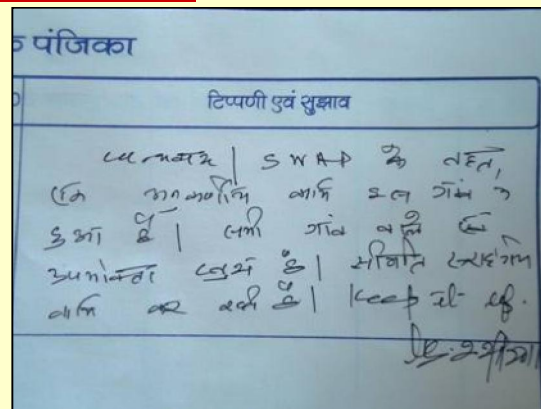 पंजिका
टिप्पणी एवं सुझाव
धन्यवाद | SWAP के तहत,
एक कार्य इस गांव में
हुआ है | सभी गांव वाले एवं
उपभोक्ता खुश हैं | समिति सराहनीय
कार्य कर रही है | Keep it up.